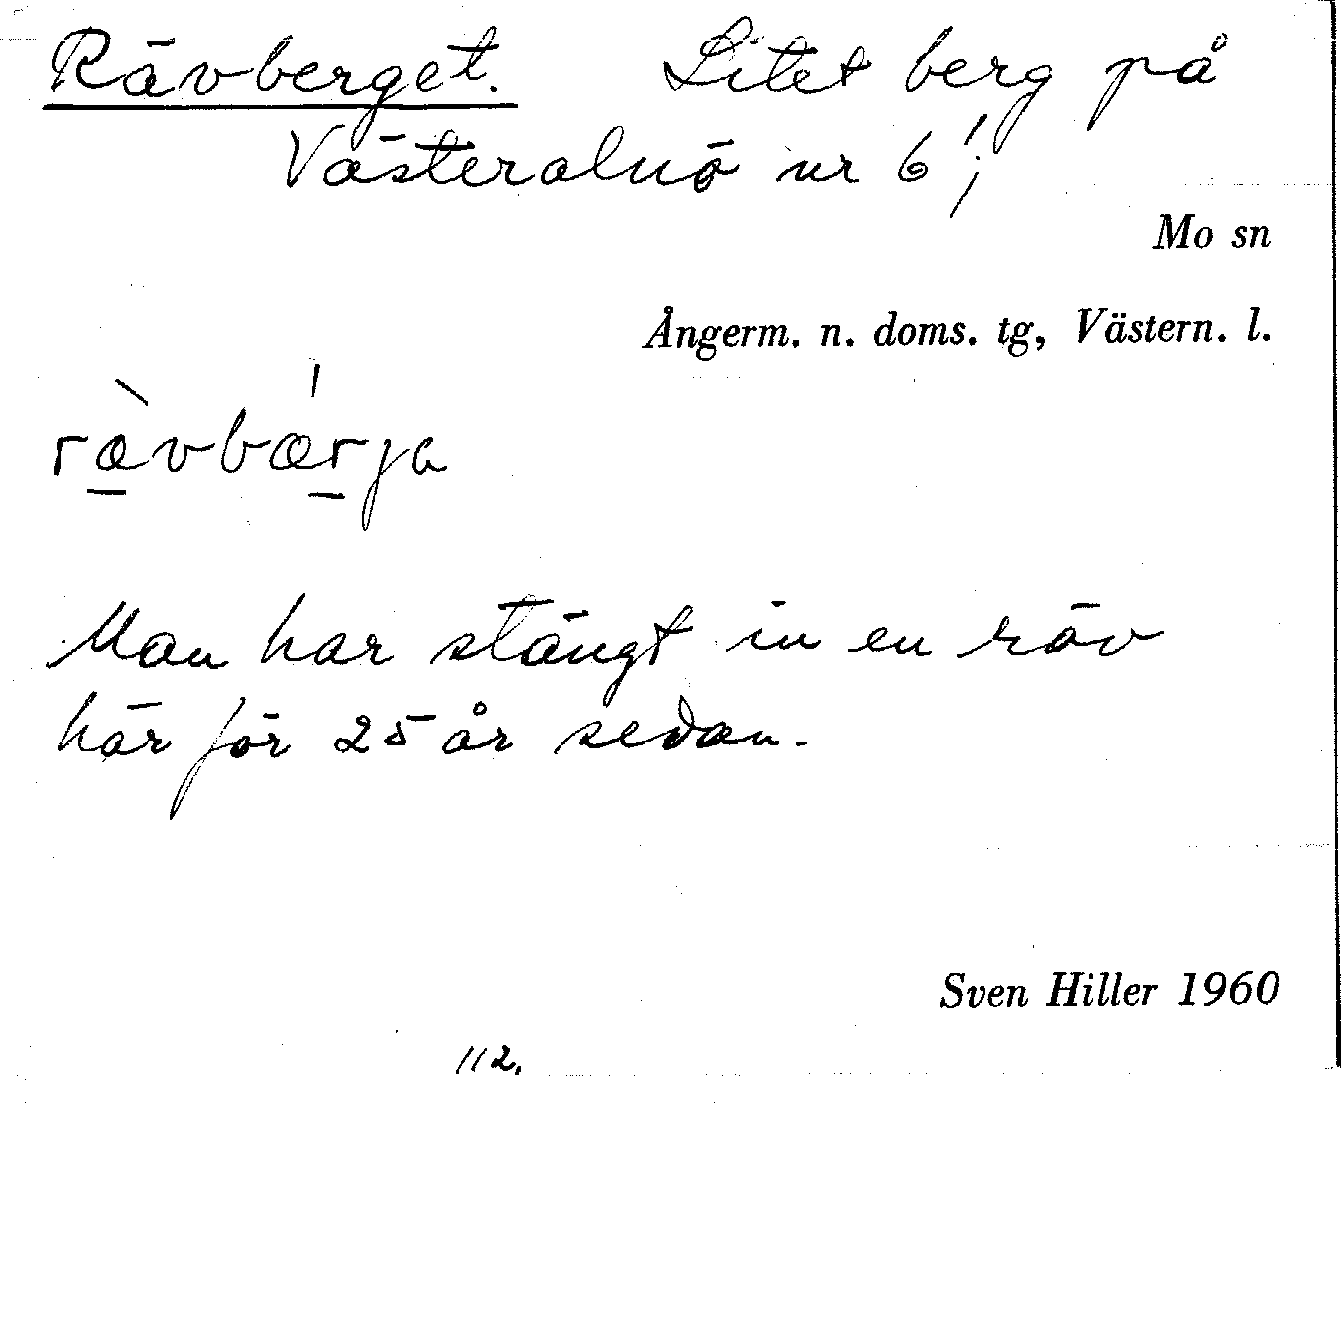 Rävberget. Litet berg på
Västeralnö nr 6¹;
Mo sn
Ångerm. n. doms. tg, Västern. l.
ræ̀vbæŕja
Man har stängt in en räv
här för 25 år sedan.
Sven Hiller 1960
112.